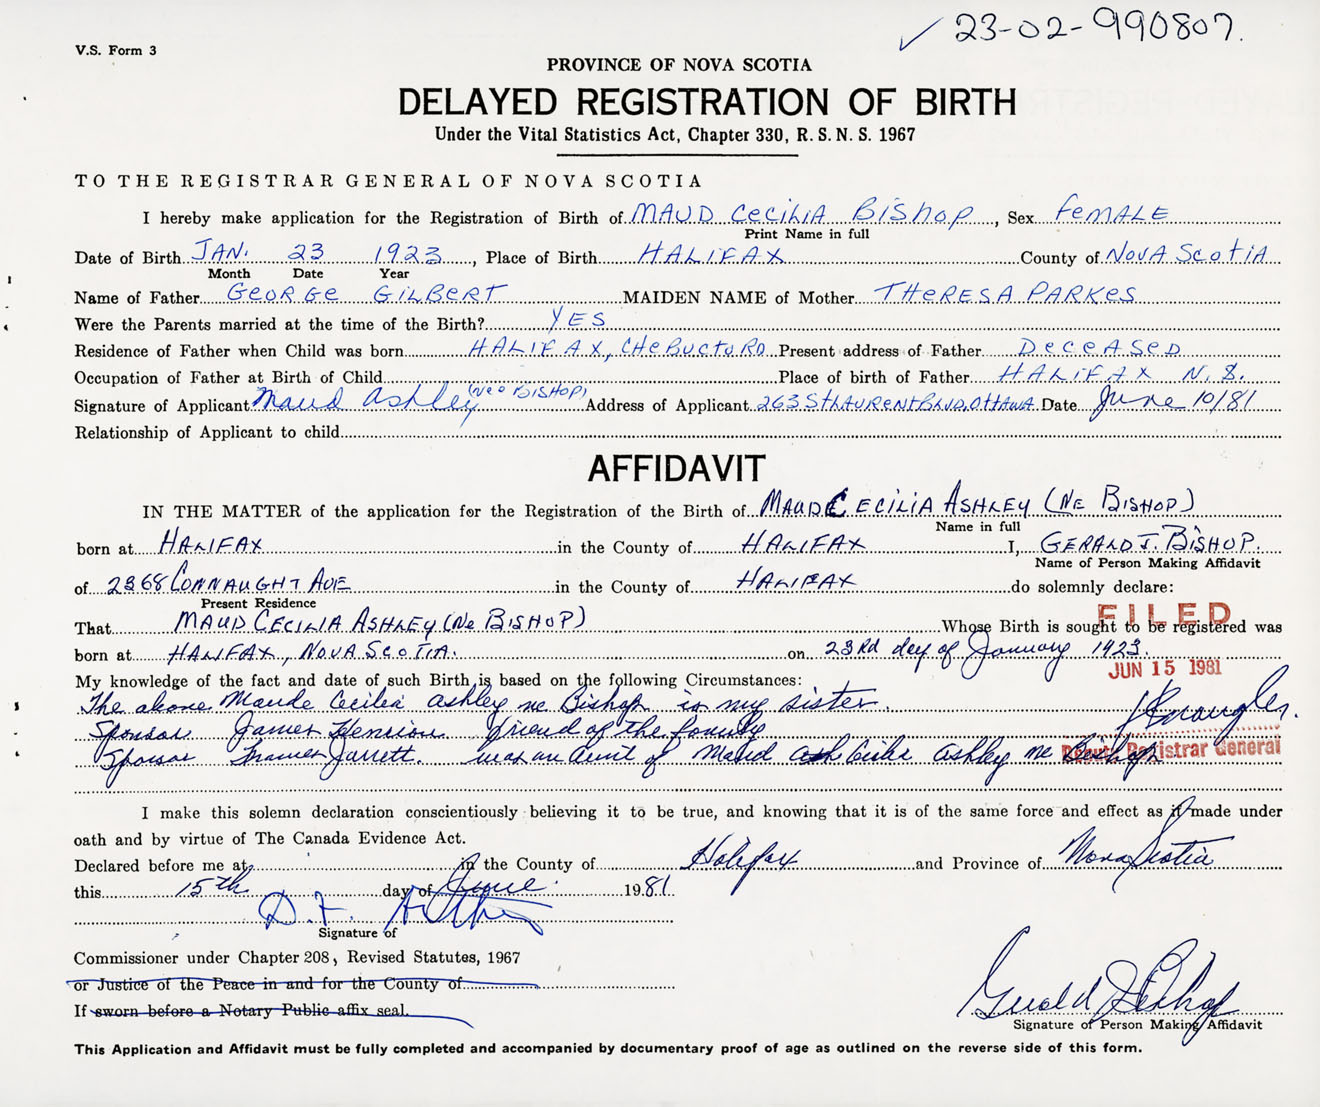 ✓ 23-02-990807.
V.S. Form 3
PROVINCE OF NOVA SCOTIA
DELAYED REGISTRATION OF BIRTH
Under the Vital Statistics Act, Chapter 330, R. S. N. S. 1967
TO THE REGISTRAR GENERAL OF NOVA SCOTIA
I hereby make application for the Registration of Birth of MAUD CeCiLiA BiSHOP, Sex FeMALE
Print Name in full
Date of Birth JAN. 23 1923, Place of Birth HALiFAX County of NOVA SCOTiA
Month Date Year
Name of Father GeORGe GiLBERT MAIDEN NAME of Mother THeRESA PARKeS
Were the Parents married at the time of the Birth? YES
Residence of Father when Child was born HALiFAX, CHeBUCTO RD Present address of Father DeCeASeD
Occupation of Father at Birth of Child Place of birth of Father HALiFAX N.S.
Signature of Applicant Maud Ashley (Nee BiSHOP) Address of Applicant 263 St LAUReNT BLVD, OTTAWA Date June 10/81
Relationship of Applicant to child
AFFIDAVIT
IN THE MATTER of the application for the Registration of the Birth of MAUD CECILIA ASHLEY (NE BISHOP)
Name in full
born at HALIFAX in the County of HALIFAX I, GERALD J. BISHOP.
Name of Person Making Affidavit
of 2368 CONNAUGHT AVE in the County of HALIFAX do solemnly declare:
Present Residence
FILED
That MAUD CECILIA ASHLEY (NE BISHOP) Whose Birth is sought to be registered was
born at HALIFAX, NOVA SCOTIA. on 23Rd day of January 1923.
JUN 15 1981
My knowledge of the fact and date of such Birth is based on the following Circumstances:
The above Maude Cecilia Ashley ne Bishop is my sister.
Sponsor James friend of the family
Sponsor Jarrett. was an Aunt of Maud Ashley ne Bishop
Deputy Registrar General
I make this solemn declaration conscientiously believing it to be true, and knowing that it is of the same force and effect as if made under
oath and by virtue of The Canada Evidence Act.
Declared before me at in the County of Halifax and Province of Nova Scotia
this 15th day of June 1981
D. F.
Signature of
Commissioner under Chapter 208, Revised Statutes, 1967
or Justice of the Peace in and for the County of
If sworn before a Notary Public affix seal.
Gerald J Bishop
Signature of Person Making Affidavit
This Application and Affidavit must be fully completed and accompanied by documentary proof of age as outlined on the reverse side of this form.